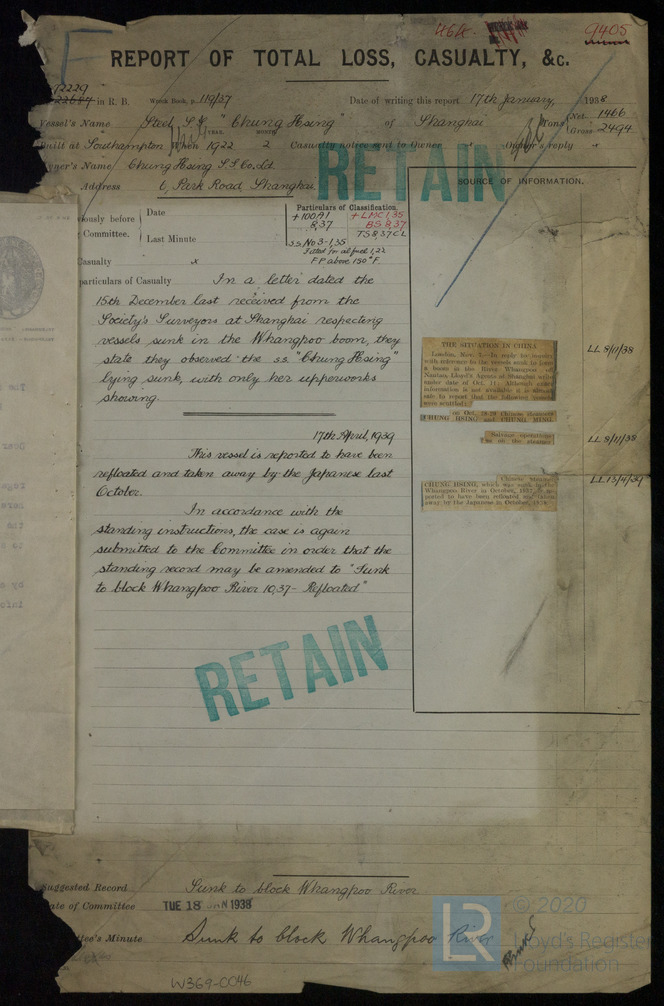 464
9405
REPORT OF TOTAL LOSS, CASUALTY, &c.
72229
22687 in R. B. Wreck Book, p. 119/37 Date of writing this report 17th January, 1938
Vessel's Name Steel S.S. "Chung Hsing" of Shanghai Tons Net 1466
Gross 2494
Built at Southampton When 1922 2 Casualty notice sent to Owner x Owner's reply x
Owner's Name Chung Hsing S.S. Co. Ld.
Address 6, Park Road, Shanghai.
RETAIN
SOURCE OF INFORMATION.
viously before
Committee.
Date
Last Minute
Particulars of Classification.
+100A1
8,37
+LMC 1,35
BS 8,37
TS 8,37 CL
S.S. No 3-1,35
Fitted for oil fuel 1,22
F.P. above 150°F.
Casualty x
particulars of Casualty In a letter dated the
15th December last received from the
Society's Surveyors at Shanghai respecting
vessels sunk in the Whangpoo boom, they
state they observed the s.s. "Chung Hsing"
lying sunk, with only her upperworks
showing.
17th April, 1939
This vessel is reported to have been
refloated and taken away by the Japanese last
October.
In accordance with the
standing instructions, the case is again
submitted to the Committee in order that the
standing record may be amended to "Sunk
to block Whangpoo River 10,37 - Refloated"
THE SITUATION IN CHINA
LL 8/11/38
CHUNG HSING and CHUNG MING.
Salvage operations
LL 8/11/38
Chinese steamer
CHUNG HSING, which was sunk in the
Whangpoo River in October, 1937, is re-
ported to have been refloated and taken
away by the Japanese in October, 1938.
LL 13/4/39
RETAIN
Suggested Record Sunk to block Whangpoo River
Date of Committee TUE 18 JAN 1938
ttee's Minute Sunk to block Whangpoo River
W369-0046
LR
© 2020
Lloyd's Register
Foundation